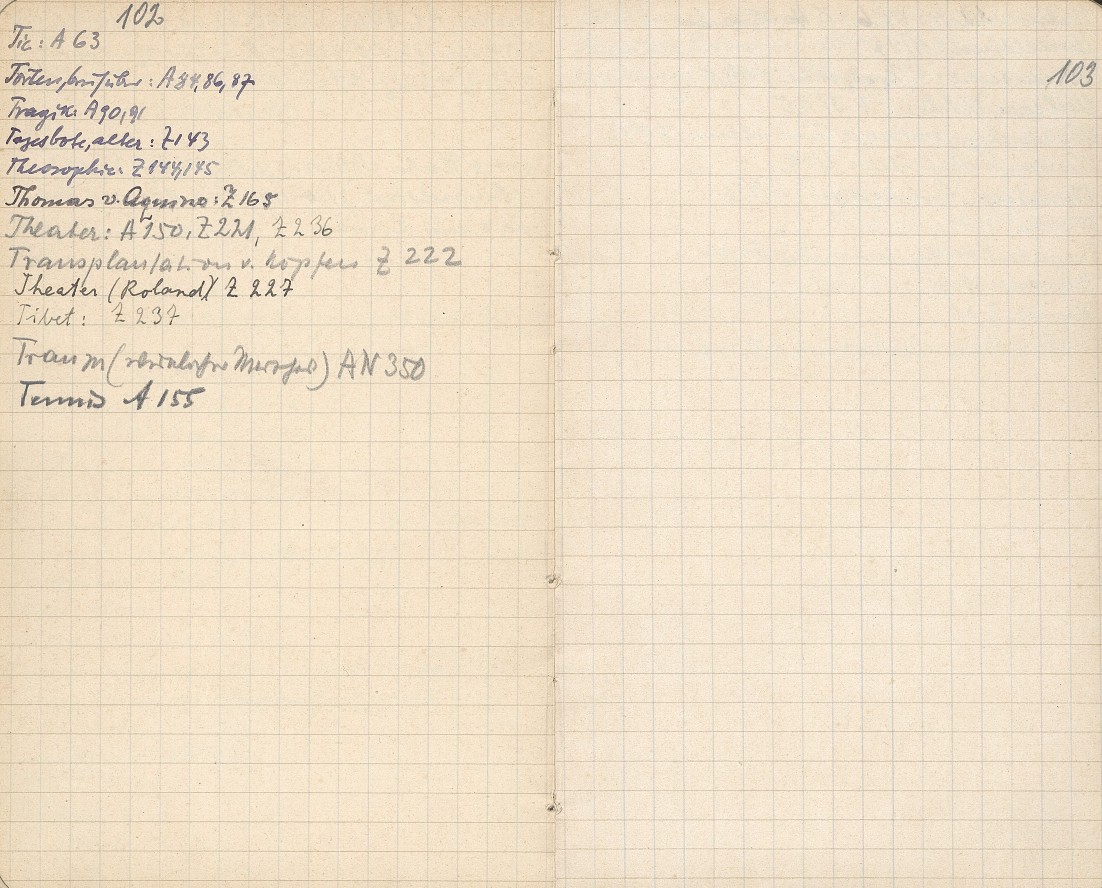 102
Tic: A 63
A 84, 86, 87
Tragik: A 90, 91
Tagesbote, alter: Z 143
Theosophie: Z 144/145
Thomas v. Aquino: Z 165
Theater: A 150, Z 221, Z 236
Transplantation v. Köpfen Z 222
Theater (Roland) Z 227
Tibet: Z 237
Traum ( ) AN 350
Tennis A 155
103